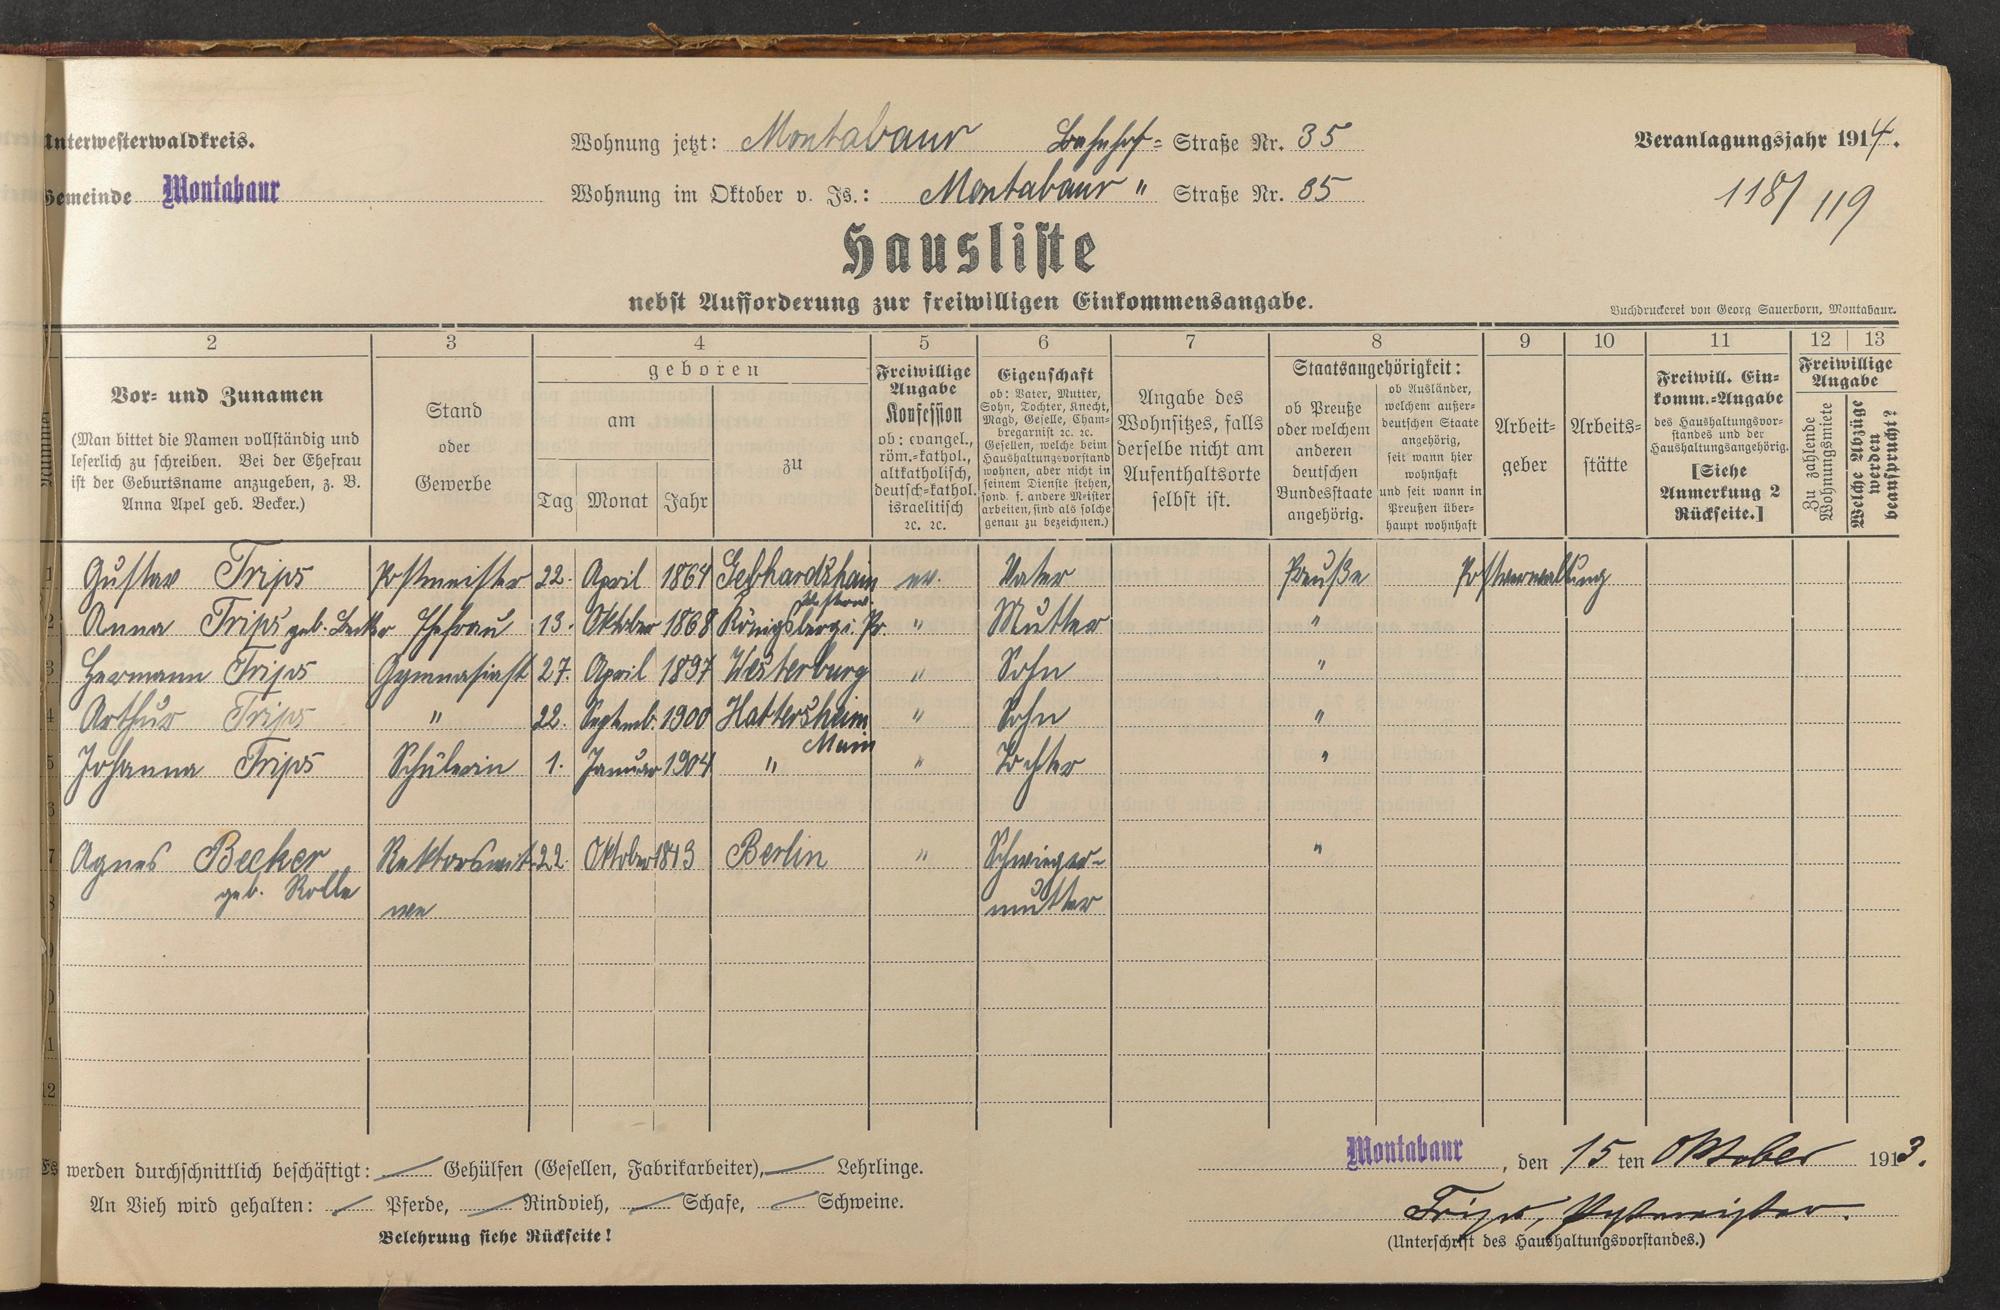 Unterwesterwaldkreis.
Wohnung jetzt: Montabaur Bahnhof= Straße Nr. 35
Veranlagungsjahr 1914.
Gemeinde Montabaur
Wohnung im Oktober v. Js.: Montabaur " Straße Nr. 35
118/119
Hausliste
nebst Aufforderung zur freiwilligen Einkommensangabe.
Buchdruckerei von Georg Sauerborn, Montabaur.
2 3 4 5 6 7 8 9 10 11 12 13
Vor- und Zunamen
(Man bittet die Namen vollständig und
leserlich zu schreiben. Bei der Ehefrau
ist der Geburtsname anzugeben, z. B.
Anna Apel geb. Becker.)
Stand
oder
Gewerbe
geboren
am
Tag Monat Jahr
zu
Freiwillige
Angabe
Konfession
ob: evangel.,
röm.-kathol.,
altkatholisch,
deutsch-kathol.
israelitisch
ꝛc. ꝛc.
Eigenschaft
ob: Vater, Mutter,
Sohn, Tochter, Knecht,
Magd, Geselle, Cham-
bregarnist ꝛc. ꝛc.
Gesellen, welche beim
Haushaltungsvorstand
wohnen, aber nicht in
seinem Dienste stehen,
sond. f. andere Meister
arbeiten, sind als solche
genau zu bezeichnen.)
Angabe des
Wohnsitzes, falls
derselbe nicht am
Aufenthaltsorte
selbst ist.
Staatsangehörigkeit:
ob Preuße
oder welchem
anderen
deutschen
Bundesstaate
angehörig.
ob Ausländer,
welchem außer-
deutschen Staate
angehörig,
seit wann hier
wohnhaft
und seit wann in
Preußen über-
haupt wohnhaft
Arbeit-
geber
Arbeits-
stätte
Freiwill. Ein-
komm.-Angabe
des Haushaltungsvor-
standes und der
Haushaltungsangehörig.
[Siehe
Anmerkung 2
Rückseite.]
Freiwillige
Angabe
Zu zahlende
Wohnungsmiete
Welche Abzüge
werden
beansprucht?
1 Gustav Trips Postmeister 22. April 1864 Gebhardshain ev. Vater Preuße Postverwaltung
2 Anna Trips geb. Becker Ehefrau 13. Oktober 1868 Königsberg i. Pr. " Mutter "
3 Hermann Trips Gymnasiast 27. April 1897 Westerburg " Sohn "
4 Arthur Trips " 22. Septemb. 1900 Hattersheim " Sohn "
Main
5 Johanna Trips Schülerin 1. Januar 1904 " " Tochter "
6
7 Agnes Becker Rektorswit- 22. Oktober 1843 Berlin " Schwieger- "
geb. Rolle
8 we mutter
9
0
1
12
Es werden durchschnittlich beschäftigt: — Gehülfen (Gesellen, Fabrikarbeiter), — Lehrlinge.
An Vieh wird gehalten: — Pferde, — Rindvieh, — Schafe, — Schweine.
Belehrung siehe Rückseite!
Montabaur, den 15 ten Oktober 1913.
Trips, Postmeister.
(Unterschrift des Haushaltungsvorstandes.)